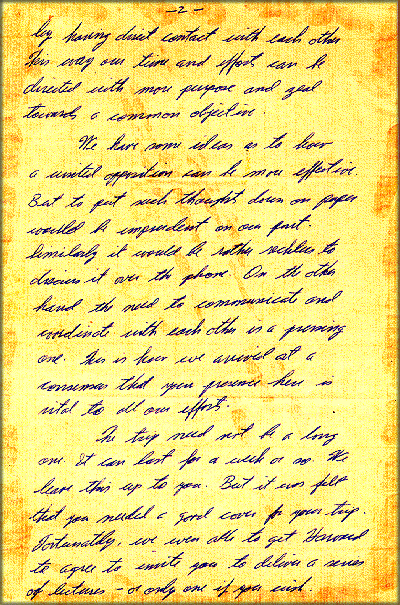 -2-
by having direct contact with each other
This way our time and efforts can be
directed with more purpose and zeal
towards a common objective.
We have some ideas as to how
a united opposition can be more effective.
But to put such thoughts down on paper
would be imprudent on our part.
Similarly it would be rather reckless to
discuss it over the phone. On the other
hand the need to communicate and
coordinate with each other is a pressing
one. This is how we arrived at a
consensus that your presence here is
vital to all our efforts.
The trip need not be a long
one. It can last for a week or so. We
leave this up to you. But it was felt
that you needed a good cover for your trip.
Fortunately we were able to get Harvard
to agree to invite you to deliver a series
of lectures - or only one if you wish.